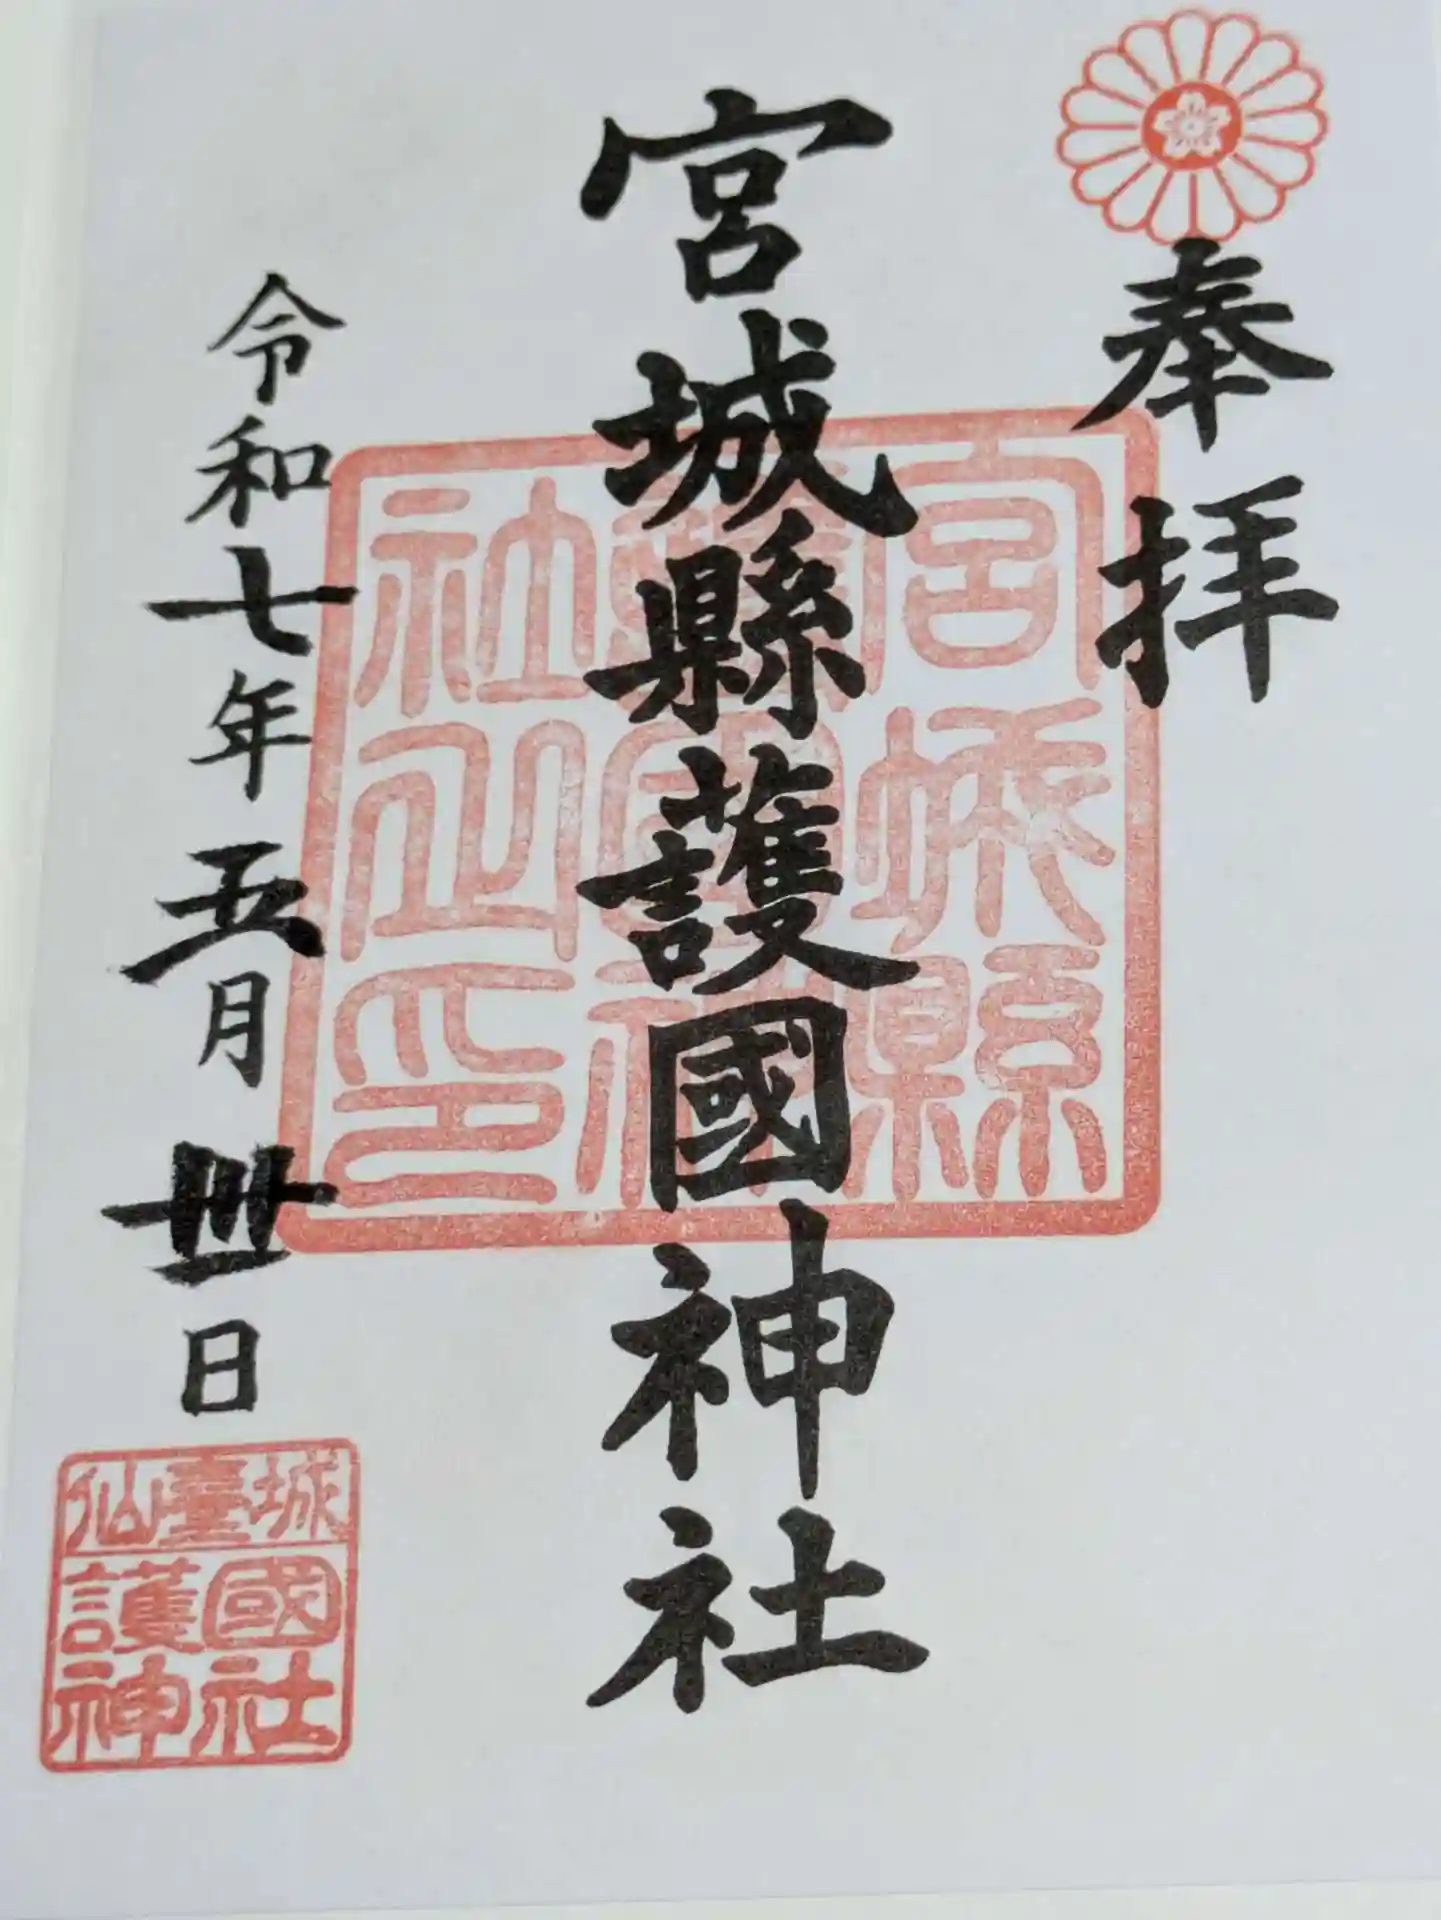 奉拝
宮城縣護國神社
令和七年五月丗日
宮城縣
護國神
社之印
仙臺城
護國
神社